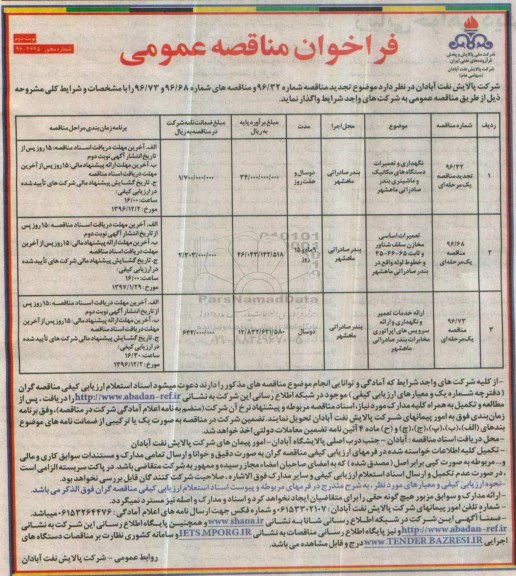 نوبت دوم
شماره مجوز ۴۶۲۵-۹۶
شرکت ملی پالایش و پخش
فرآورده‌های نفتی ایران
شرکت پالایش نفت آبادان
(سهامی عام)
فراخوان مناقصه عمومی
شرکت پالایش نفت آبادان در نظر دارد موضوع تجدید مناقصه شماره ۹۶/۳۲ و مناقصه های شماره ۹۶/۶۸ و ۹۶/۷۳ را با مشخصات و شرایط کلی مشروحه
ذیل از طریق مناقصه عمومی به شرکت های واجد شرایط واگذار نماید.
ردیف شماره مناقصه موضوع محل اجرا مدت مبلغ برآورد پایه به ریال مبلغ ضمانت نامه شرکت در مناقصه به ریال برنامه زمان بندی مراحل مناقصه
۱
۹۶/۳۲
تجدید مناقصه
یک مرحله ای
نگهداری و تعمیرات
دستگاه های مکانیک
و ماشینری بندر
صادراتی ماهشهر
بندر صادراتی
ماهشهر
دو سال و
هفت روز
۳۴/۰۰۰/۰۰۰/۰۰۰
۱/۷۰۰/۰۰۰/۰۰۰
الف. آخرین مهلت دریافت اسناد مناقصه: ۱۵ روز پس از
تاریخ انتشار آگهی نوبت دوم
ب. آخرین مهلت ارائه پیشنهاد مالی: ۱۵ روز پس از آخرین
مهلت دریافت اسناد مناقصه
ج. تاریخ گشایش پیشنهاد مالی شرکت های تأیید شده
در ارزیابی کیفی:
ساعت: ۱۶/۰۰
مورخ: ۱۳۹۶/۱۲/۲۰
۲
۹۶/۶۸
مناقصه
یک مرحله ای
تعمیرات اساسی
مخازن سقف شناور
و ثابت ۶۵-۶۶-۴۵
و خطوط لوله واقع در
بندر صادراتی ماهشهر
بندر صادراتی
ماهشهر
روز
۲/۳۰۳/۰۰۰/۰۰۰
الف. آخرین مهلت دریافت اسناد مناقصه: ۱۵ روز پس
از تاریخ انتشار آگهی نوبت دوم
ب. آخرین مهلت ارائه پیشنهاد مالی: ۱۵ روز پس از آخرین
مهلت دریافت اسناد مناقصه
ج. تاریخ گشایش پیشنهاد مالی شرکت های تأیید شده
در ارزیابی کیفی:
ساعت: ۱۶/۰۰
مورخ: ۱۳۹۷/۱/۲۹
۳
۹۶/۷۳
مناقصه
یک مرحله ای
ارائه خدمات تعمیر
و نگهداری و ارائه
سرویس های اپراتوری
مخابرات بندر صادراتی
ماهشهر
بندر صادراتی
ماهشهر
دو سال
۱۲/۸۳۲/۶۳۱/۵۸۰
۶۴۲/۰۰۰/۰۰۰
الف. آخرین مهلت دریافت اسناد مناقصه: ۱۵ روز پس از
تاریخ انتشار آگهی نوبت دوم
ب. آخرین مهلت ارائه پیشنهاد مالی: ۱۵ روز پس از آخرین
مهلت دریافت اسناد مناقصه
ج. تاریخ گشایش پیشنهاد مالی شرکت های تأیید شده
در ارزیابی کیفی:
ساعت: ۱۶/۳۰
مورخ: ۱۳۹۶/۱۲/۲۰
ParsNamadData
-از کلیه شرکت های واجد شرایط که آمادگی و توانایی انجام موضوع مناقصه های مذکور را دارند دعوت میشود اسناد استعلام ارزیابی کیفی مناقصه گران
(دفترچه شماره یک و معیارهای ارزیابی کیفی) موجود در شبکه اطلاع رسانی این شرکت به نشانی http://www.abadan-ref.ir را دریافت، پس از
مطالعه و تکمیل به همراه کلیه مدارک مورد نیاز، اسناد مناقصه مربوطه و پیشنهاد نرخ آن شرکت (منضم به نامه اعلام آمادگی شرکت در مناقصه)، وفق برنامه
زمان بندی فوق به امور پیمانهای شرکت پالایش نفت آبادان تحویل نمایند. تضمین شرکت در مناقصه به صورت یک یا ترکیبی از ضمانت نامه های موضوع
بندهای (الف)، (ب)، (پ)، (ج) و (ح) ماده ۴ آئین نامه تضمین معاملات دولتی اخذ خواهد شد.
- محل دریافت اسناد مناقصه: آبادان - جنب درب اصلی پالایشگاه آبادان - امور پیمان های شرکت پالایش نفت آبادان
- تکمیل کلیه اطلاعات خواسته شده در فرمهای ارزیابی کیفی مناقصه گران به صورت دقیق و خوانا و ارسال تمامی مدارک و مستندات سوابق کاری و مالی
و... مربوطه به صورت کپی برابر اصل (مصدق شده) که به امضای صاحبان امضاء مجاز رسیده و ممهور به مهر شرکت متقاضی باشد. در پاکت سربسته الزامی است
- در صورت عدم تکمیل و ارسال اسناد استعلام ارزیابی کیفی و سایر مدارک فوق الاشاره، صلاحیت شرکت کنندگان قابل بررسی نخواهد بود.
-نحوه ارزیابی کیفی و معیارهای مورد نظر، به شرح مندرج در فرمهای مربوطه و پیوست اسناد استعلام ارزیابی کیفی مناقصه گران فوق الذکر می باشد.
- ارائه مدارک و سوابق مزبور هیچ گونه حقی را برای متقاضیان ایجاد نخواهد کرد و اسناد و مدارک واصله نیز مسترد نمیگردد.
- شماره تلفن امور پیمانهای شرکت پالایش نفت آبادان: ۰۶۱۵۳۳۰۲۱۰۷ و شماره فکس جهت ارسال نامه های اعلام آمادگی: ۰۶۱۵۳۲۶۴۴۷۶ میباشد.
- ضمناً آگهی این شرکت در شبکه اطلاع رسانی شانا به نشانی www.shana.ir و همچنین پایگاه اطلاع رسانی این شرکت به نشانی
http://www.abadan-ref.ir و نیز پایگاه اطلاع رسانی مناقصات به نشانی IETS.MPORG.IR و سامانه کشوری نظارت بر مناقصات دستگاه های
اجرایی WWW.TENDER.BAZRESI.IR درج و قابل مشاهده می باشد.
روابط عمومی - شرکت پالایش نفت آبادان